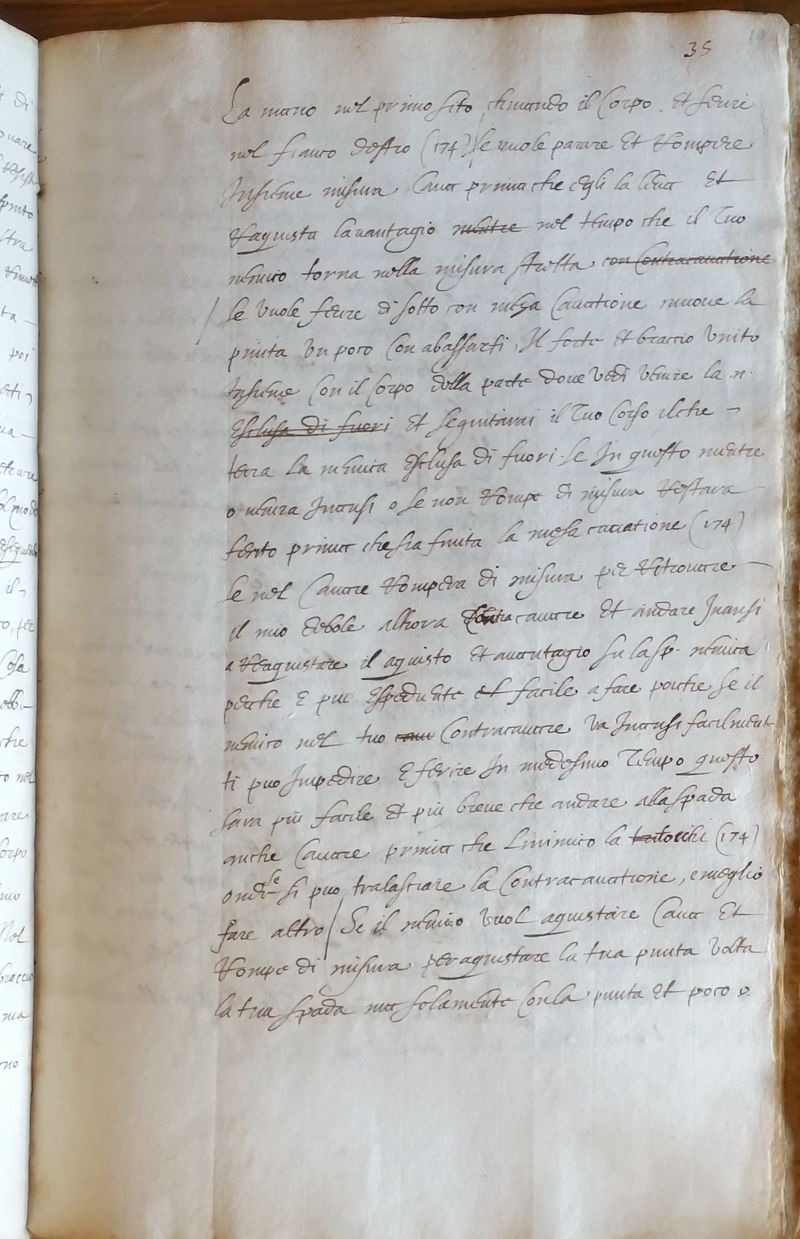 35
La mano nel primo sito chinando il Corpo Et ferire
nel fianco destro (174) se vuole parare Et Rompere
Insieme misura Cava prima che egli la Et
Raquista lavantagio mentre nel tempo che il Tuo
nemico torna nella misura stretta con Contracavatione
se vuole ferire di sotto con meza Cavatione muove la
punta Un poco Con abassarti, Il forte et braccio Unito
Insieme Con il Corpo della parte dove Vedi Venire la .n.
Esclusa di fuori Et seguitarai il Tuo Corso il che
la nemica Esclusa di fuori. Se In questo mentre
o Inansi o se non Rompe di misura Restara
ferito prima che sia finita la mesa cavatione (174)
Se nel Cavare Rompera di misura per
il mio debole alhora Contra cavare Et andare Inansi
a Reaquistare il aquisto Et avantagio su la sp. nemica
perche E piu Espediente et facile a fare poiche Se il
nemico nel tuo cava Contracavare Va Inansi facilment
ti puo Impedire E ferire In medesimo Tempo questo
sara più facile et più breve che andare alla spada
anche Cavare prima che Linimico la (174)
onde si puo tralasciare la Contracavatione, e meglio
fare altro / Se il nemico Vuol aquistare Cava Et
Rompe di misura per aquistare la tua punta Volta
la tua spada ma solamente Con la punta Et poco